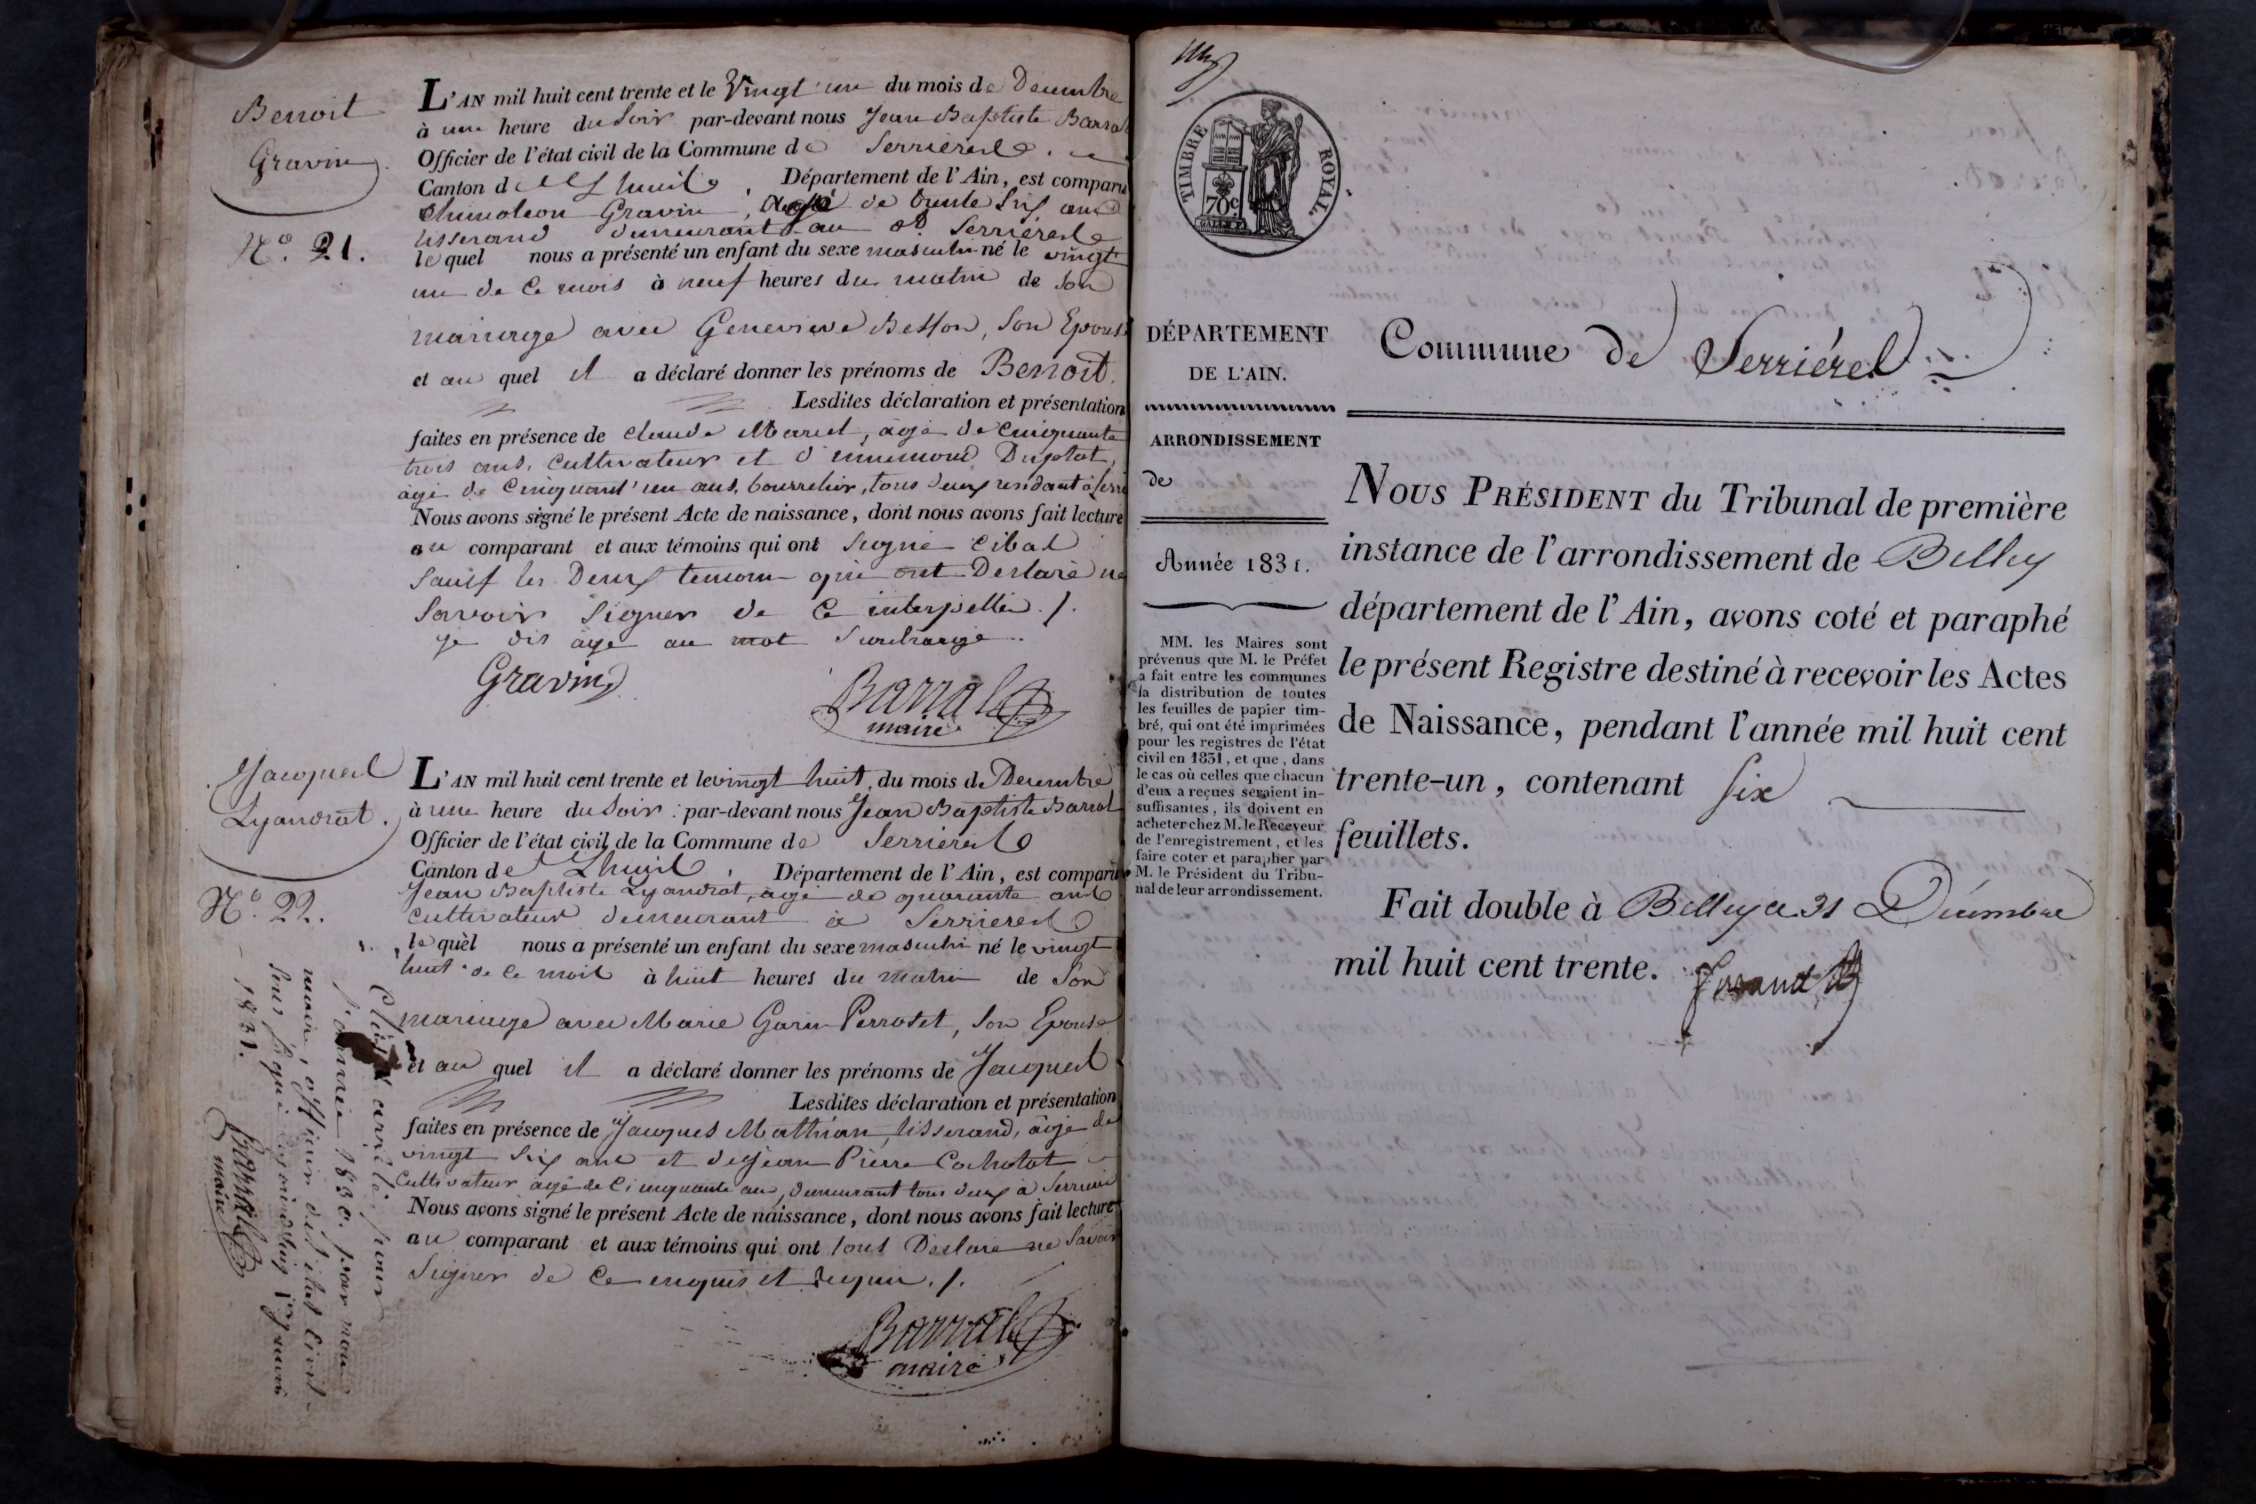 Benoit
Gravin
N.º 21.
L'AN mil huit cent trente et le Vingt un du mois de Decembre
à une heure du Soir par-devant nous Jean Baptiste Barral
Officier de l'état civil de la Commune de Serrieres
Canton de Lhuis, Département de l'Ain, est comparu
Gravin, de trente Six ans
tisserand demeurant au d. Serrieres
le quel nous a présenté un enfant du sexe masculin né le vingt
un de Ce mois à neuf heures du matin de Son
mariage avec Genevieve Besson, Son Epouse
et au quel il a déclaré donner les prénoms de Benoit.
Lesdites déclaration et présentation
faites en présence de Claude Maret, agé de Cinquante
trois ans, Cultivateur et d'ennemond Duplat,
agé de Cinquant'un ans, bourrelier, tous deux
Nous avons signé le présent Acte de naissance, dont nous avons fait lecture
au comparant et aux témoins qui ont Signé
Sauf les Deux temoins qui ont Declaré ne
Savoir Signer de Ce interpellés ./.
je dis agé au mot Surchargé.
Gravin
Barral
maire
Jacques
Lyandrat.
N.º 22.
L'AN mil huit cent trente et le vingt huit, du mois de Decembre
à une heure du Soir par-devant nous Jean Baptiste Barral
Officier de l'état civil de la Commune de Serrieres
Canton de Lhuis, Département de l'Ain, est comparu
Jean Baptiste Lyandrat, agé de quarante ans
Cultivateur demeurant à Serrieres
le quel nous a présenté un enfant du sexe masculin né le vingt
huit de Ce mois à huit heures du matin de Son
mariage avec Marie Garin Perrotet, Son Epouse
et au quel il a déclaré donner les prénoms de Jacques
Lesdites déclaration et présentation
faites en présence de Jacques Mathian, tisserand, agé de
vingt Six ans et de Jean Pierre Cochotat
Cultivateur agé de Cinquante ans, demeurant tous deux à
Nous avons signé le présent Acte de naissance, dont nous avons fait lecture
au comparant et aux témoins qui ont tous Declaré ne Savoir
Signer de Ce enquis et requis ./.
Barral
maire
Clos et arrêté pour
l'année 1830. par nous
maire, officier de l'état Civil
Sous Signé aujourd'hui 1er janvier
1831.
Barral
maire
TIMBRE ROYAL.
70c
DÉPARTEMENT
DE L'AIN.
ARRONDISSEMENT
de
Année 1831.
MM. les Maires sont
prévenus que M. le Préfet
a fait entre les communes
la distribution de toutes
les feuilles de papier tim-
bré, qui ont été imprimées
pour les registres de l'état
civil en 1831, et que, dans
le cas où celles que chacun
d'eux a reçues seraient in-
suffisantes, ils doivent en
acheter chez M. le Receveur
de l'enregistrement, et les
faire coter et parapher par
M. le Président du Tribu-
nal de leur arrondissement.
Commune de Serriéres
NOUS PRÉSIDENT du Tribunal de première
instance de l'arrondissement de Belley
département de l'Ain, avons coté et paraphé
le présent Registre destiné à recevoir les Actes
de Naissance, pendant l'année mil huit cent
trente-un, contenant six
feuillets.
Fait double à Belley ce 31 Décembre
mil huit cent trente.